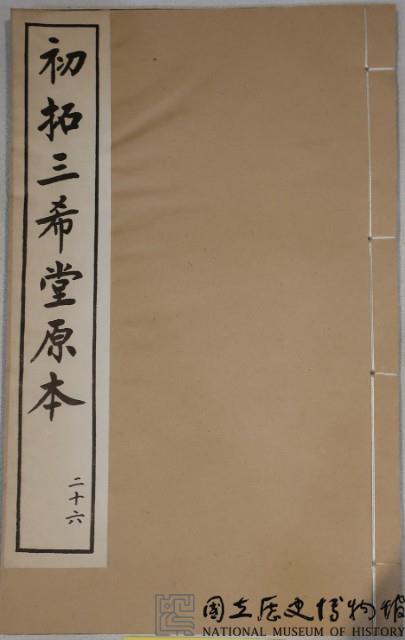 初拓三希堂原本
二十六
國立歷史博物館
NATIONAL MUSEUM OF HISTORY